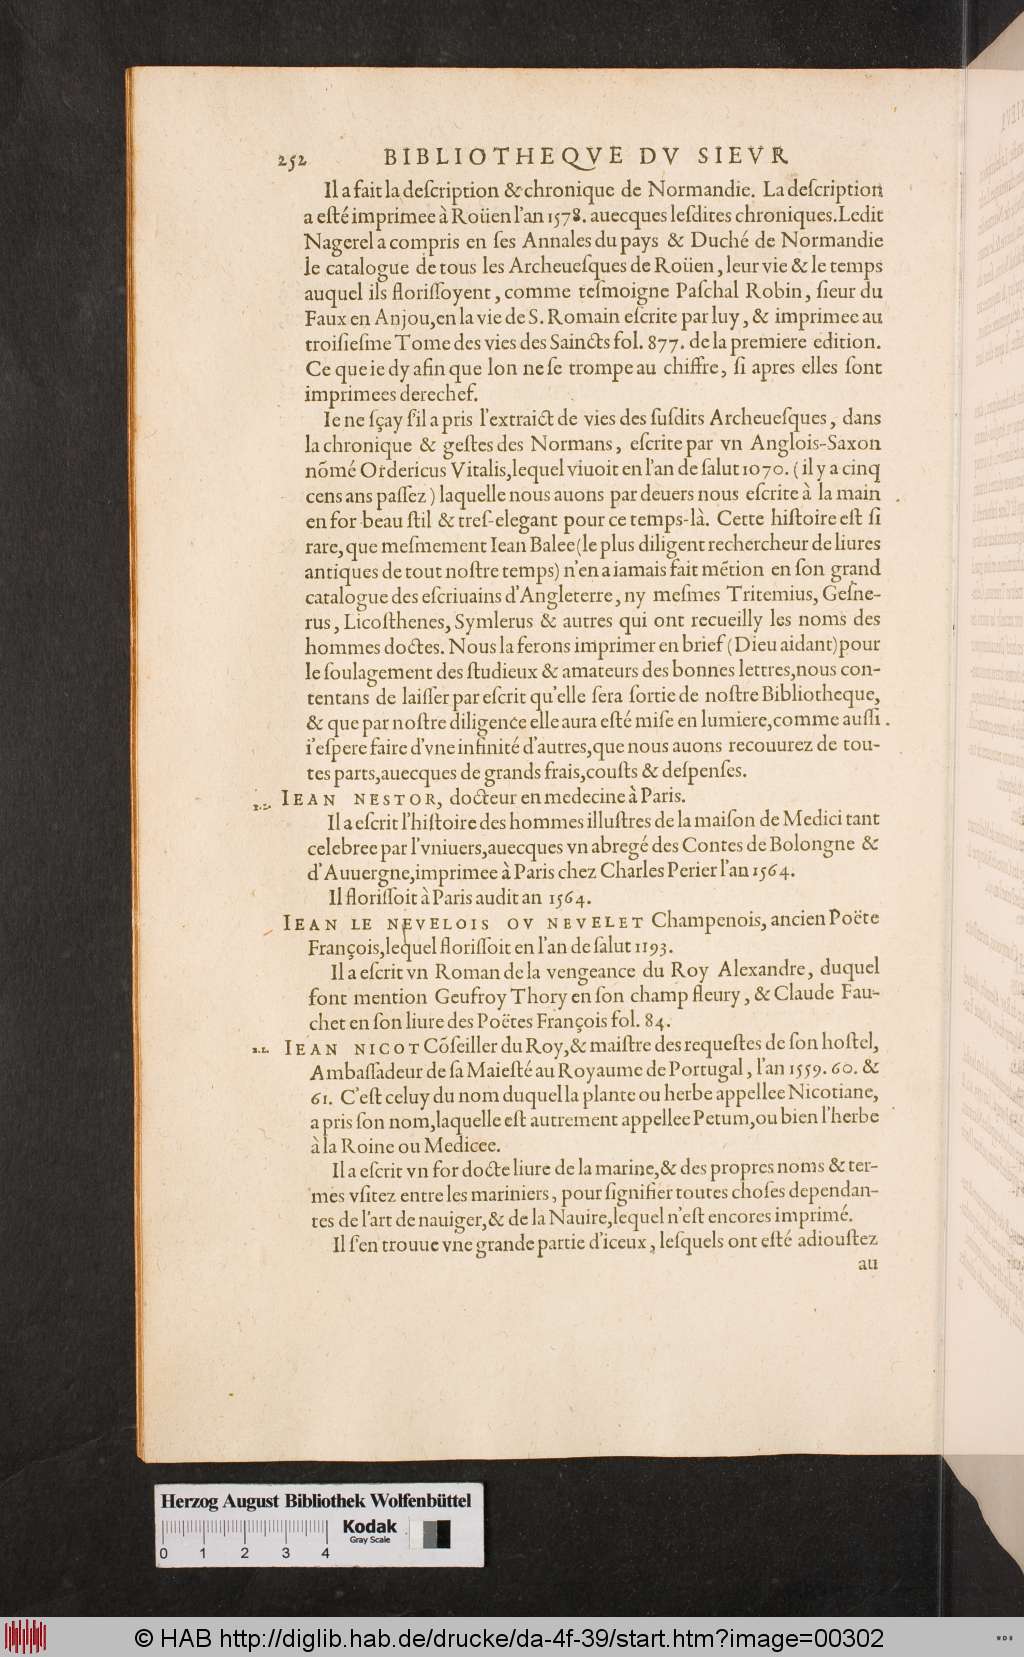 252 BIBLIOTHEQVE DV SIEVR
Il a fait la deſcription & chronique de Normandie. La deſcription
a eſté imprimee à Roüen l'an 1578. auecques leſdites chroniques. Ledit
Nagerel a compris en ſes Annales du pays & Duché de Normandie
le catalogue de tous les Archeueſques de Roüen, leur vie & le temps
auquel ils floriſſoyent, comme teſmoigne Paſchal Robin, ſieur du
Faux en Anjou, en la vie de S. Romain eſcrite par luy, & imprimee au
troiſieſme Tome des vies des Saincts fol. 877. de la premiere edition.
Ce que ie dy afin que lon ne ſe trompe au chiffre, ſi apres elles ſont
imprimees derechef.
Ie ne ſçay ſ'il a pris l'extraict de vies des ſuſdits Archeueſques, dans
la chronique & geſtes des Normans, eſcrite par vn Anglois-Saxon
nõmé Ordericus Vitalis, lequel viuoit en l'an de ſalut 1070. (il y a cinq
cens ans paſſez) laquelle nous auons par deuers nous eſcrite à la main
en for beau ſtil & treſ-elegant pour ce temps-là. Cette hiſtoire eſt ſi
rare, que meſmement Iean Balee (le plus diligent rechercheur de liures
antiques de tout noſtre temps) n'en a iamais fait mẽtion en ſon grand
catalogue des eſcriuains d'Angleterre, ny meſmes Tritemius, Geſne-
rus, Licoſthenes, Symlerus & autres qui ont recueilly les noms des
hommes doctes. Nous la ferons imprimer en brief (Dieu aidant) pour
le ſoulagement des ſtudieux & amateurs des bonnes lettres, nous con-
tentans de laiſſer par eſcrit qu'elle ſera ſortie de noſtre Bibliotheque,
& que par noſtre diligence elle aura eſté miſe en lumiere, comme auſſi
i'eſpere faire d'vne infinité d'autres, que nous auons recouurez de tou-
tes parts, auecques de grands frais, couſts & deſpenſes.
IEAN NESTOR, docteur en medecine à Paris.
Il a eſcrit l'hiſtoire des hommes illuſtres de la maiſon de Medici tant
celebree par l'vniuers, auecques vn abregé des Contes de Bolongne &
d'Auuergne, imprimee à Paris chez Charles Perier l'an 1564.
Il floriſſoit à Paris audit an 1564.
IEAN LE NEVELOIS OV NEVELET Champenois, ancien Poëte
François, lequel floriſſoit en l'an de ſalut 1193.
Il a eſcrit vn Roman de la vengeance du Roy Alexandre, duquel
font mention Geufroy Thory en ſon champ fleury, & Claude Fau-
chet en ſon liure des Poëtes François fol. 84.
IEAN NICOT Cõſeiller du Roy, & maiſtre des requeſtes de ſon hoſtel,
Ambaſſadeur de ſa Maieſté au Royaume de Portugal, l'an 1559. 60. &
61. C'eſt celuy du nom duquel la plante ou herbe appellee Nicotiane,
a pris ſon nom, laquelle eſt autrement appellee Petum, ou bien l'herbe
à la Roine ou Medicee.
Il a eſcrit vn for docte liure de la marine, & des propres noms & ter-
mes vſitez entre les mariniers, pour ſignifier toutes choſes dependan-
tes de l'art de nauiger, & de la Nauire, lequel n'eſt encores imprimé.
Il ſ'en trouue vne grande partie d'iceux, leſquels ont eſté adiouſtez
au
Herzog August Bibliothek Wolfenbüttel
Kodak
Gray Scale
0 1 2 3 4
© HAB http://diglib.hab.de/drucke/da-4f-39/start.htm?image=00302